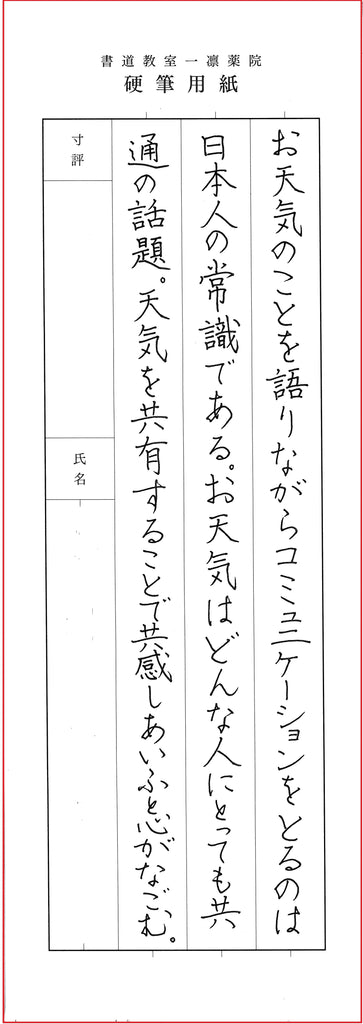 書道教室一凛薬院
硬筆用紙
お天気のことを語りながらコミュニケーションをとるのは
日本人の常識である。お天気はどんな人にとっても共
通の話題。天気を共有することで共感しあいふと心がなごむ。
寸評
氏名